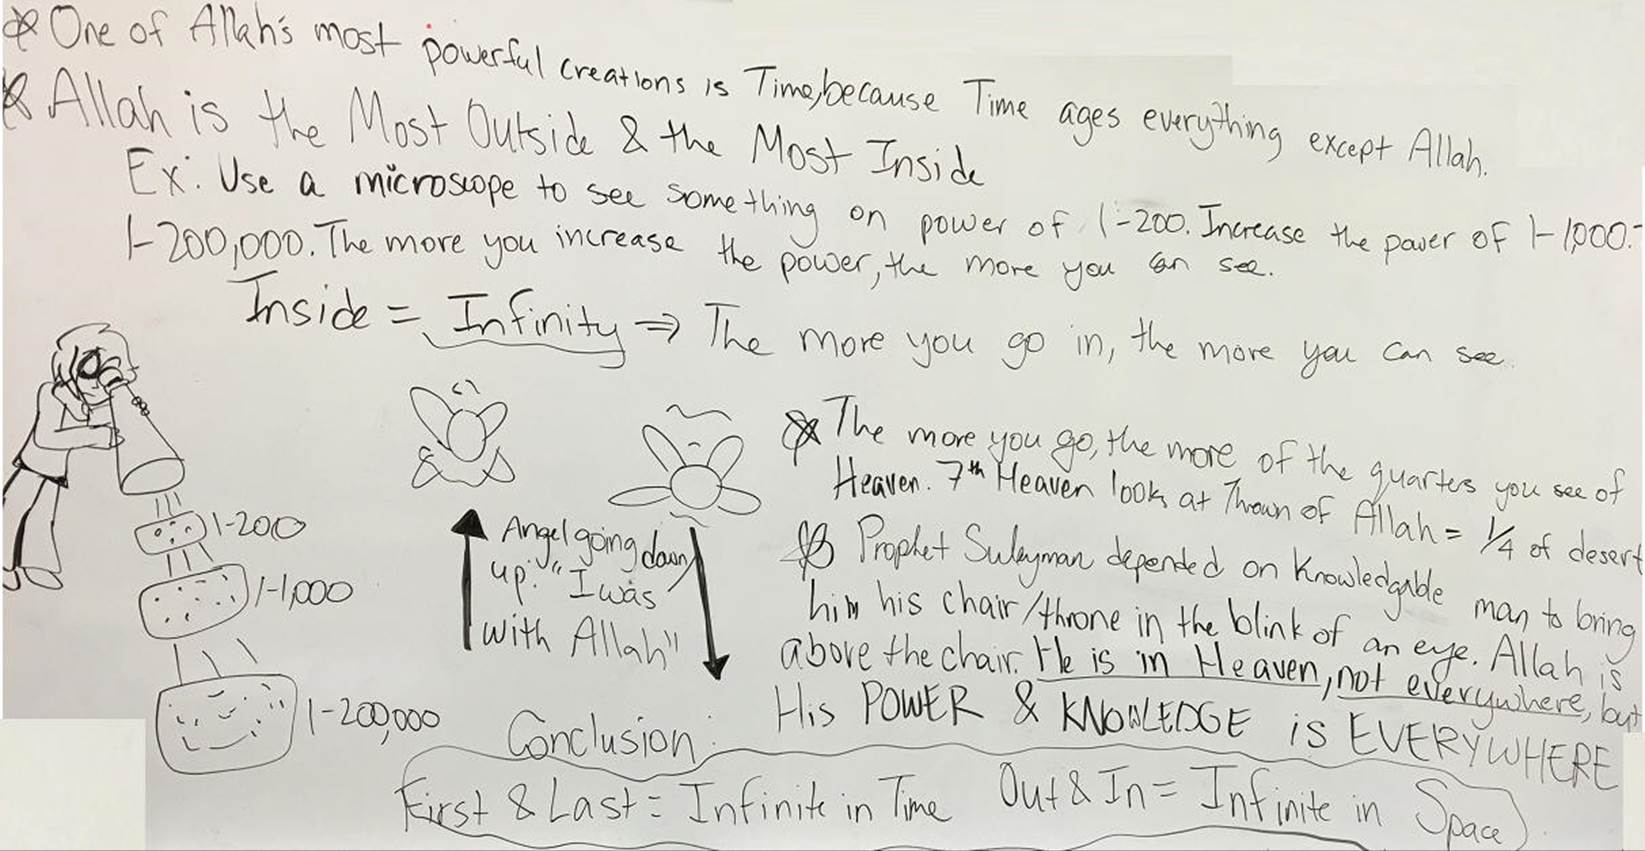 One of Allah's most powerful creations is Time, because Time ages everything except Allah.
Allah is the Most Outside & the Most Inside
Ex: Use a microscope to see something on power of 1-200. Increase the power of 1-1,000.-
1-200,000. The more you increase the power, the more you can see.
Inside = Infinity ⇒ The more you go in, the more you can see.
The more you go, the more of the quarters you see of
Heaven. 7th Heaven look at Thrown of Allah = 1/4 of desert
Prophet Suleyman depended on Knowledgable man to bring
him his chair/throne in the blink of an eye. Allah is
above the chair. He is in Heaven, not everywhere, but
His POWER & KNOWLEDGE is EVERYWHERE
1-200
1-1,000
1-200,000
Angel going down/
up: "I was
with Allah"
Conclusion:
First & Last = Infinite in Time Out & In = Infinite in Space